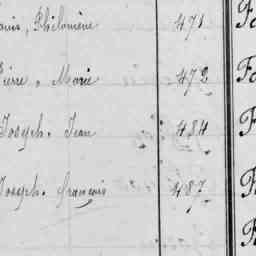 ouis, Philomène 471 Fa
Pierre, Marie 479 Fa
Joseph, Jean 484 F
Joseph, françois 487 F
F